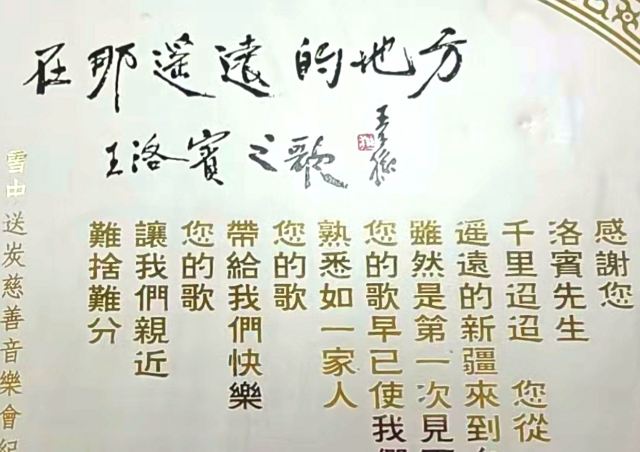 在那遥遠的地方
王洛賓之歌
感謝您
洛賓先生
千里迢迢 您從
遥遠的新疆來到
雖然是第一次見
您的歌早已使我們
熟悉如一家人
您的歌
帶給我們快樂
您的歌
讓我們親近
難捨難分
雪中送炭慈善音樂會紀